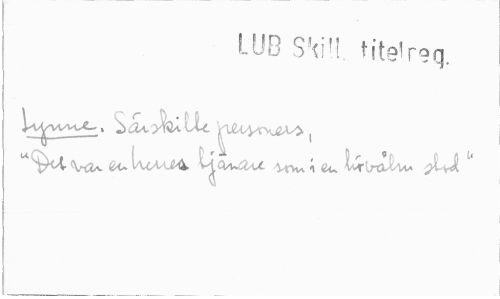 LUB Skill. titelreg.
Lynne. Särskilte personers,
"Det var en herres tjänare som i en hövålm stod"